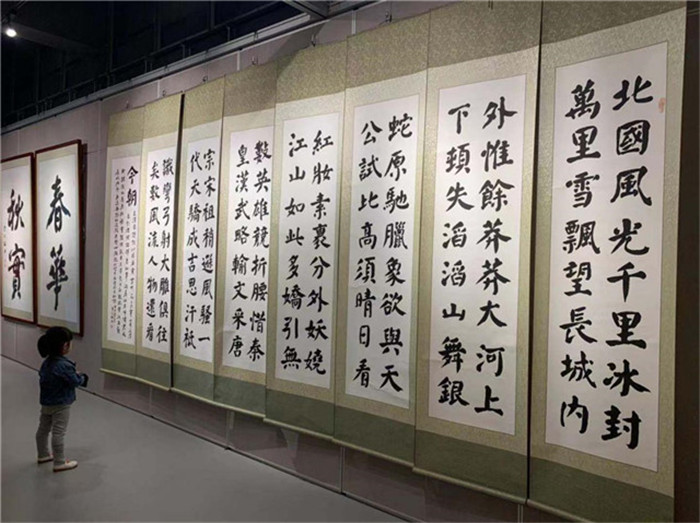 北國風光千里冰封
萬里雪飄望長城內
外惟餘莽莽大河上
下頓失滔滔山舞銀
蛇原馳臘象欲與天
公試比高須晴日看
紅妝素裹分外妖嬈
江山如此多嬌引無
數英雄競折腰惜秦
皇漢武略輸文采唐
宗宋祖稍遜風騷一
代天驕成吉思汗祗
識彎弓射大雕俱往
矣數風流人物還看
今朝
春華
秋實